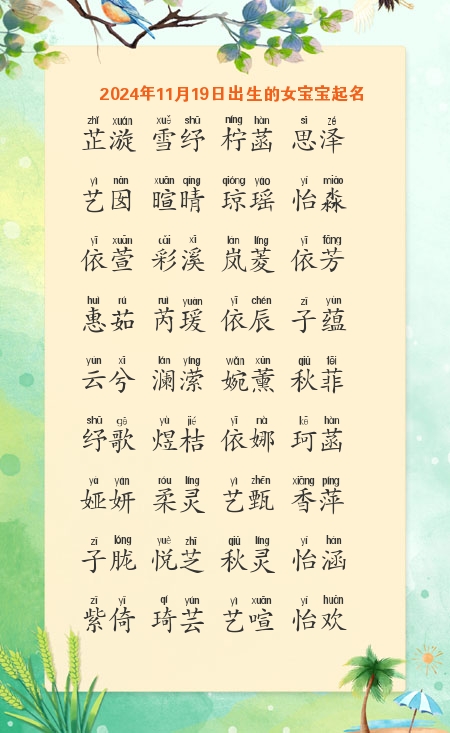 2024年11月19日出生的女宝宝起名
zhǐ xuán xuě shū níng hàn sì zé
芷漩 雪纾 柠菡 思泽
yì nān xuān qíng qióng yáo yí miǎo
艺囡 暄晴 琼瑶 怡淼
yī xuān cǎi xī lán líng yī fāng
依萱 彩溪 岚菱 依芳
huì rú ruì yuàn yī chén zǐ yùn
惠茹 芮瑗 依辰 子蕴
yún xī lán yíng wǎn xūn qiū fēi
云兮 澜潆 婉薰 秋菲
shū gē yù jié yī nà kē hàn
纾歌 煜桔 依娜 珂菡
yà yán róu líng yì zhēn xiāng píng
娅妍 柔灵 艺甄 香萍
zǐ lóng yuè zhī qiū líng yí hán
子胧 悦芝 秋灵 怡涵
zǐ yǐ qí yún yì xuān yí huān
紫倚 琦芸 艺喧 怡欢